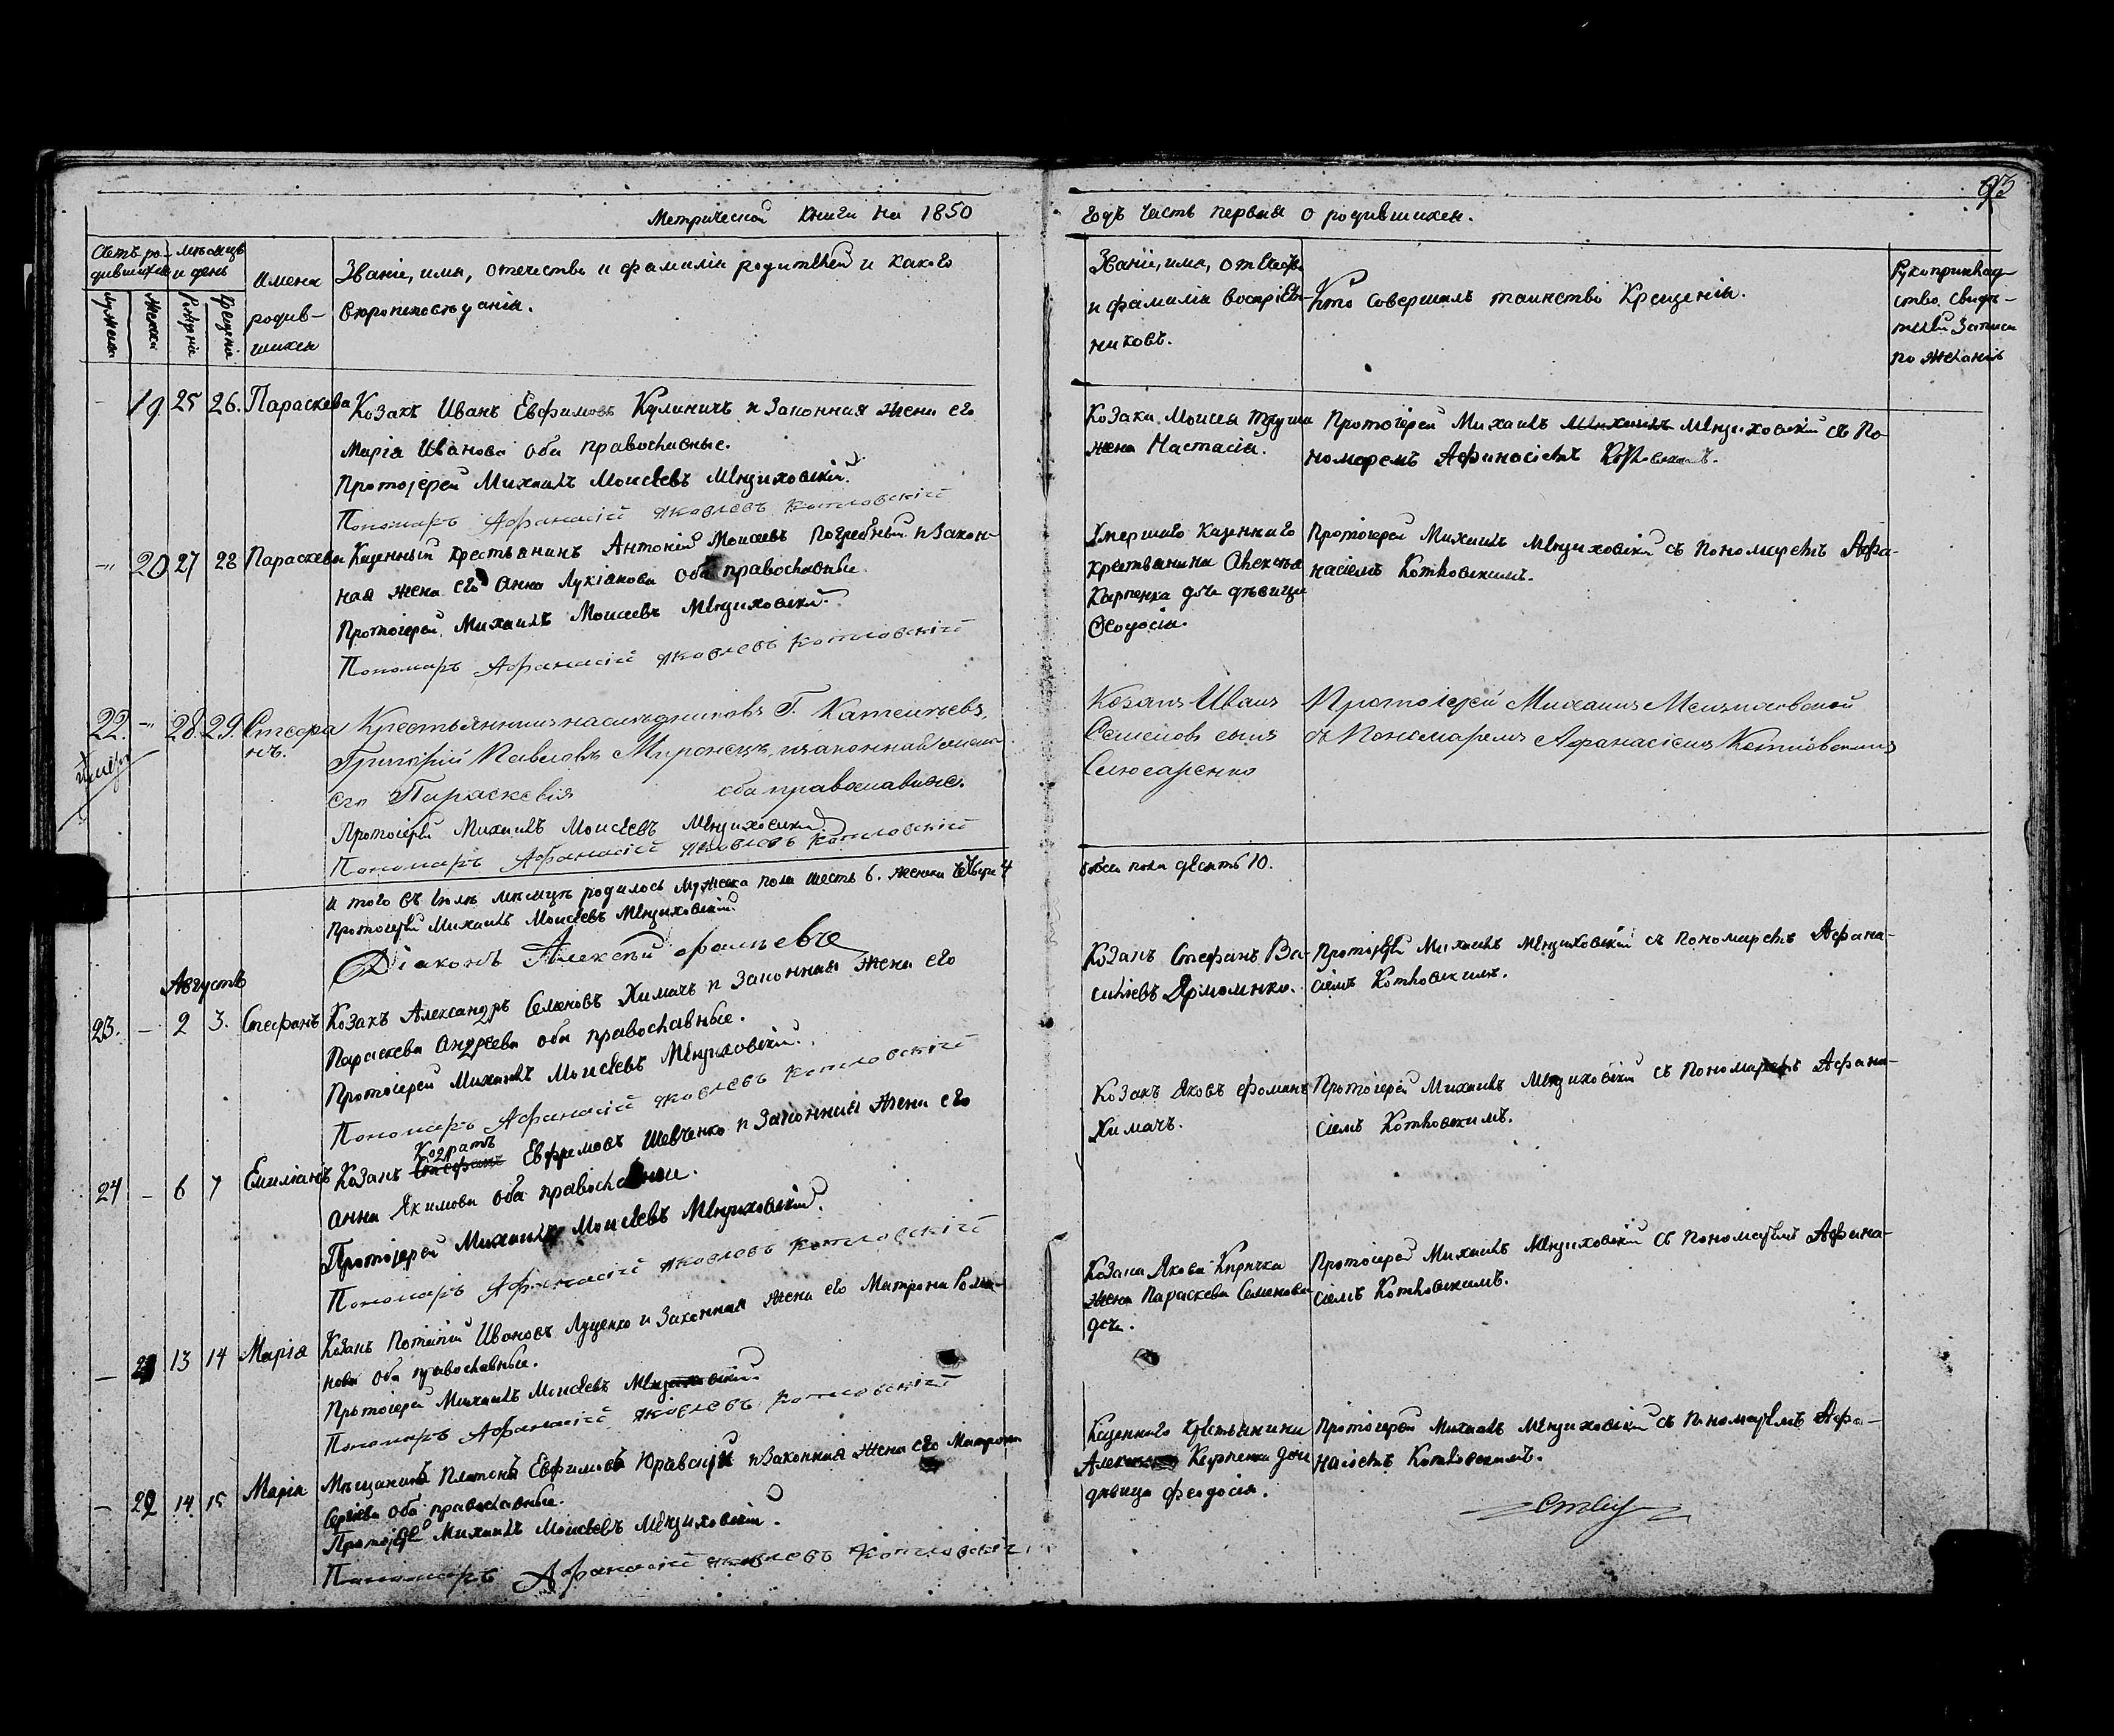 93
Метрической книги на 1850
годъ часть первая о родившихся.
Счетъ ро-
дившихся
мѣсяцъ
и день
Мужеска
Женска
Рожденія
Крещенія
Имена
родив-
шихся
Званіе, имя, отечество и фамилія родителей и какого
вѣроисповѣданія.
Званіе, имя, отечество
и фамилія воспріем-
никовъ.
Кто совершалъ таинство Крещенія.
Рукоприклад-
ство свидѣ-
телей записи
по желанію
- 19 25 26. Параскева
Козакъ Иванъ Евфимовъ Кулиничъ и Законная жена его
Марія Иванова оба православные.
Протоіерей Михаилъ Моисеевъ
Пономарь Афанасій Яковлевъ Котловскій
Козака Моисея
жена Настасія.
Протоіерей Михаилъ съ По-
номаремъ Афанасіемъ
-"- 20 27 28 Параскева
Казенный крестьянинъ Антоній Моисеевъ Погребный и Закон-
ная жена его Анна Лукіанова Оба православные.
Протоіерей Михаилъ Моисеевъ
Пономарь Афанасій Яковлевъ Котловскій
Умершаго казеннаго
крестьянина Алексея
Карпенка дочь дѣвица
Феодосія.
Протоіерей Михаилъ съ пономаремъ Афа-
насіемъ Котловскимъ.
22. -"- 28. 29. Стефа
нъ.
умеръ
Крестьянинъ наслѣдниковъ Г.
Григорій Павловъ Миронецъ, и законная жена
его Параскевія оба православные.
Протоіерей Михаилъ Моисеевъ
Пономарь Афанасій Яковлевъ Котловскій
Козакъ Иванъ
Семеновъ сынъ
Слюсаренко
Протоіерей Михаилъ
съ Пономаремъ Афанасіемъ Котловскимъ
И того въ Іюлѣ мѣсяцѣ родилось Мужеска пола шесть 6. женска четыре 4
обоего пола десять 10.
Протоіерей Михаилъ Моисеевъ
Діаконъ Алексѣй
Августъ
23. - 2 3. Стефанъ
Козакъ Александръ Семеновъ Химачъ и Законная жена его
Параскева Андреева оба православные.
Протоіерей Михаилъ Моисеевъ
Пономарь Афанасій Яковлевъ Котловскій
Козакъ Стефанъ Ва-
силіевъ Ярмоленко.
Протоіерей Михаилъ съ пономаремъ Афана-
сіемъ Котловскимъ.
24 - 6 7 Емиліанъ
Кодратъ
Козакъ Стефанъ Евфремовъ Шевченко и Законная жена его
Анна Якимова оба православные.
Протоіерей Михаилъ Моисеевъ
Пономарь Афанасій Яковлевъ Котловскій
Козакъ Яковъ Фоминъ
Химачъ.
Протоіерей Михаилъ съ пономаремъ Афана-
сіемъ Котловскимъ.
- 21 13 14 Марія
Козакъ Потапій Ивановъ Луценко и Законная жена его Матрона Рома-
нова оба православные.
Протоіерей Михаилъ Моисеевъ
Пономарь Афанасій Яковлевъ Котловскій
Козака Якова Киричка
жена Параскева Семенова
дочь.
Протоіерей Михаилъ съ пономаремъ Афана-
сіемъ Котловскимъ.
- 22 14. 15 Марія
Мѣщанинъ Платонъ Евфимовъ и Законная жена его Матрона
Сергіева оба православные.
Протоіерей Михаилъ Моисеевъ
Пономарь Афанасій Яковлевъ Котловскій
Казеннаго крестьянина
Карпенка дочь
дѣвица Феодосія.
Протоіерей Михаилъ съ пономаремъ Афа-
насіемъ Котловскимъ.